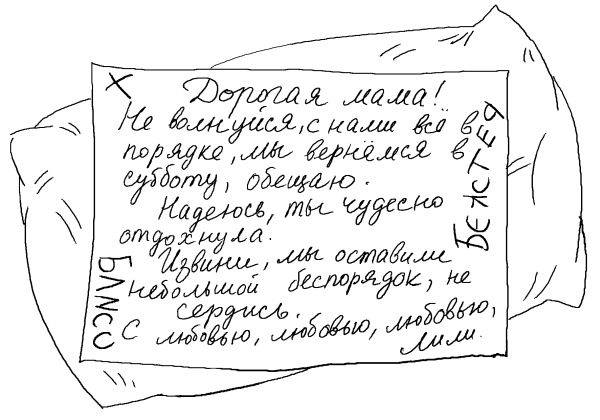 X
Дорогая мама!
Не волнуйся, с нами всё в
порядке, мы вернёмся в
субботу, обещаю.
Надеюсь, ты чудесно
отдохнула.
Извини, мы оставили
небольшой беспорядок, не
сердись.
С любовью, любовью, любовью,
Лили.